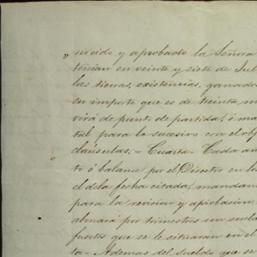 nocido y aprobado la Señora
tenian en veinte y siete de Jul
las tierras, existencias, ganado
su importe que es de treinta m
virá de punto de partida, ó ma
tal para lo sucesivo con el obj
cláusulas. = Cuarta. Cada an
to ó balance por el Director en los
el de la fecha citada, mandan
para la revision y aprobacion
abonará por trimestres un sueldo
fuertes que se le situarán en el
ta. Ademas del sueldo que se